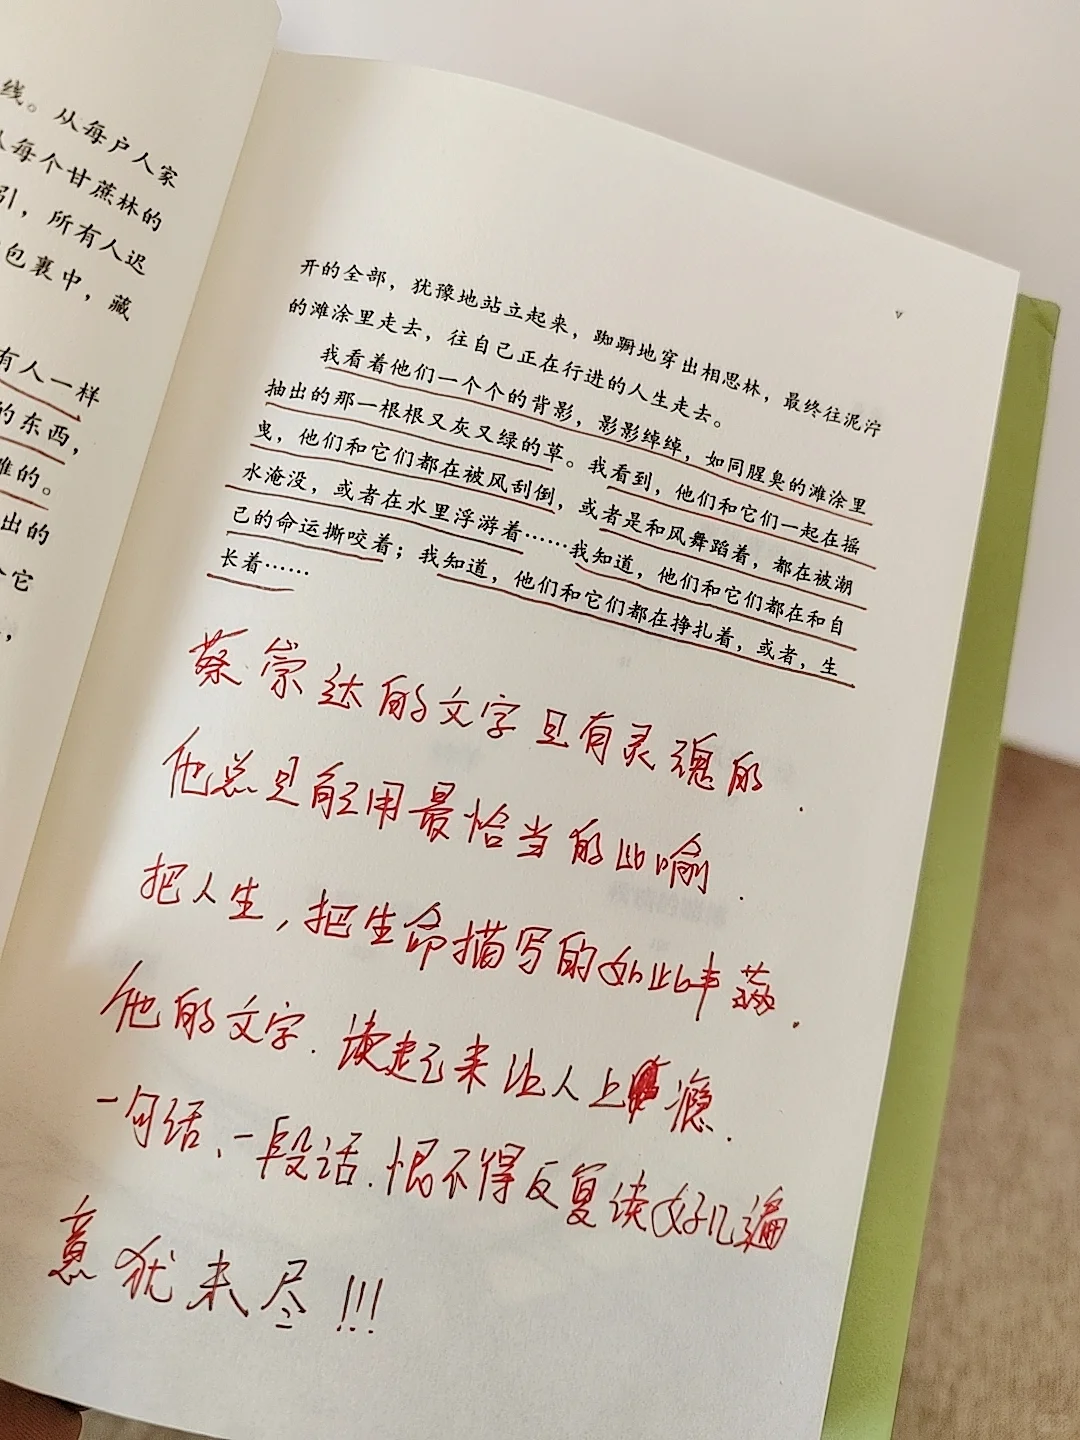 线。从每户人家
从每个甘蔗林的
引，所有人迟
包裹中，藏
有人一样
的东西，
的。
出的
个它
，
开的全部，犹豫地站立起来，踟蹰地穿出相思林，最终往泥泞
的滩涂里走去，往自己正在行进的人生走去。
我看着他们一个个的背影，影影绰绰，如同腥臭的滩涂里
抽出的那一根根又灰又绿的草。我看到，他们和它们一起在摇
曳，他们和它们都在被风刮倒，或者是和风舞蹈着，都在被潮
水淹没，或者在水里浮游着……我知道，他们和它们都在和自
己的命运撕咬着；我知道，他们和它们都在挣扎着，或者，生
长着……
蔡崇达的文字是有灵魂的.
他总是能用最恰当的比喻.
把人生，把生命描写的如此丰满.
他的文字.读起来让人上瘾.
一句话、一段话.恨不得反复读好几遍
意犹未尽!!!